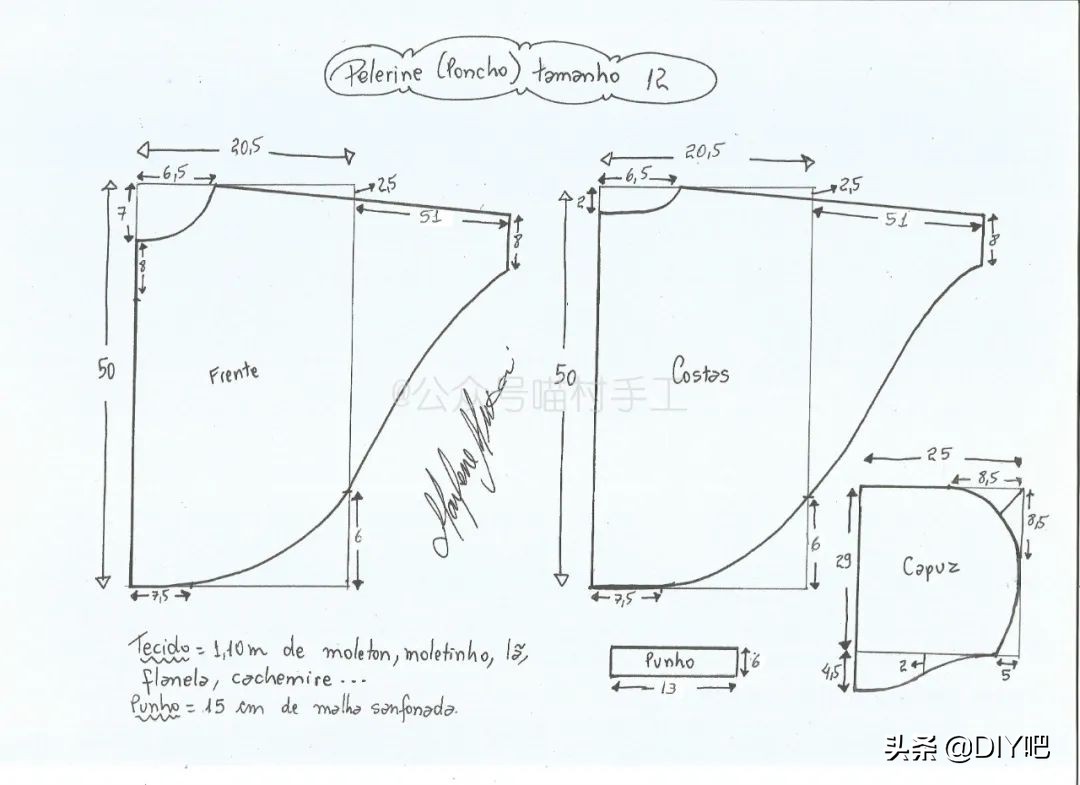 Pelerine (Poncho) tamanho 12
20,5
6,5
2,5
7
51
8
8
50
Frente
6
7,5
20,5
6,5
2,5
2
51
8
50
Costas
6
7,5
@公众号喵村手工
Marlene Mukai
25
8,5
8,5
29
Capuz
4,5
2
5
Punho
6
13
Tecido = 1,10m de moleton, moletinho, lã,
flanela, cachemire ...
Punho = 15 cm de malha sanfonada.
头条 @DIY吧